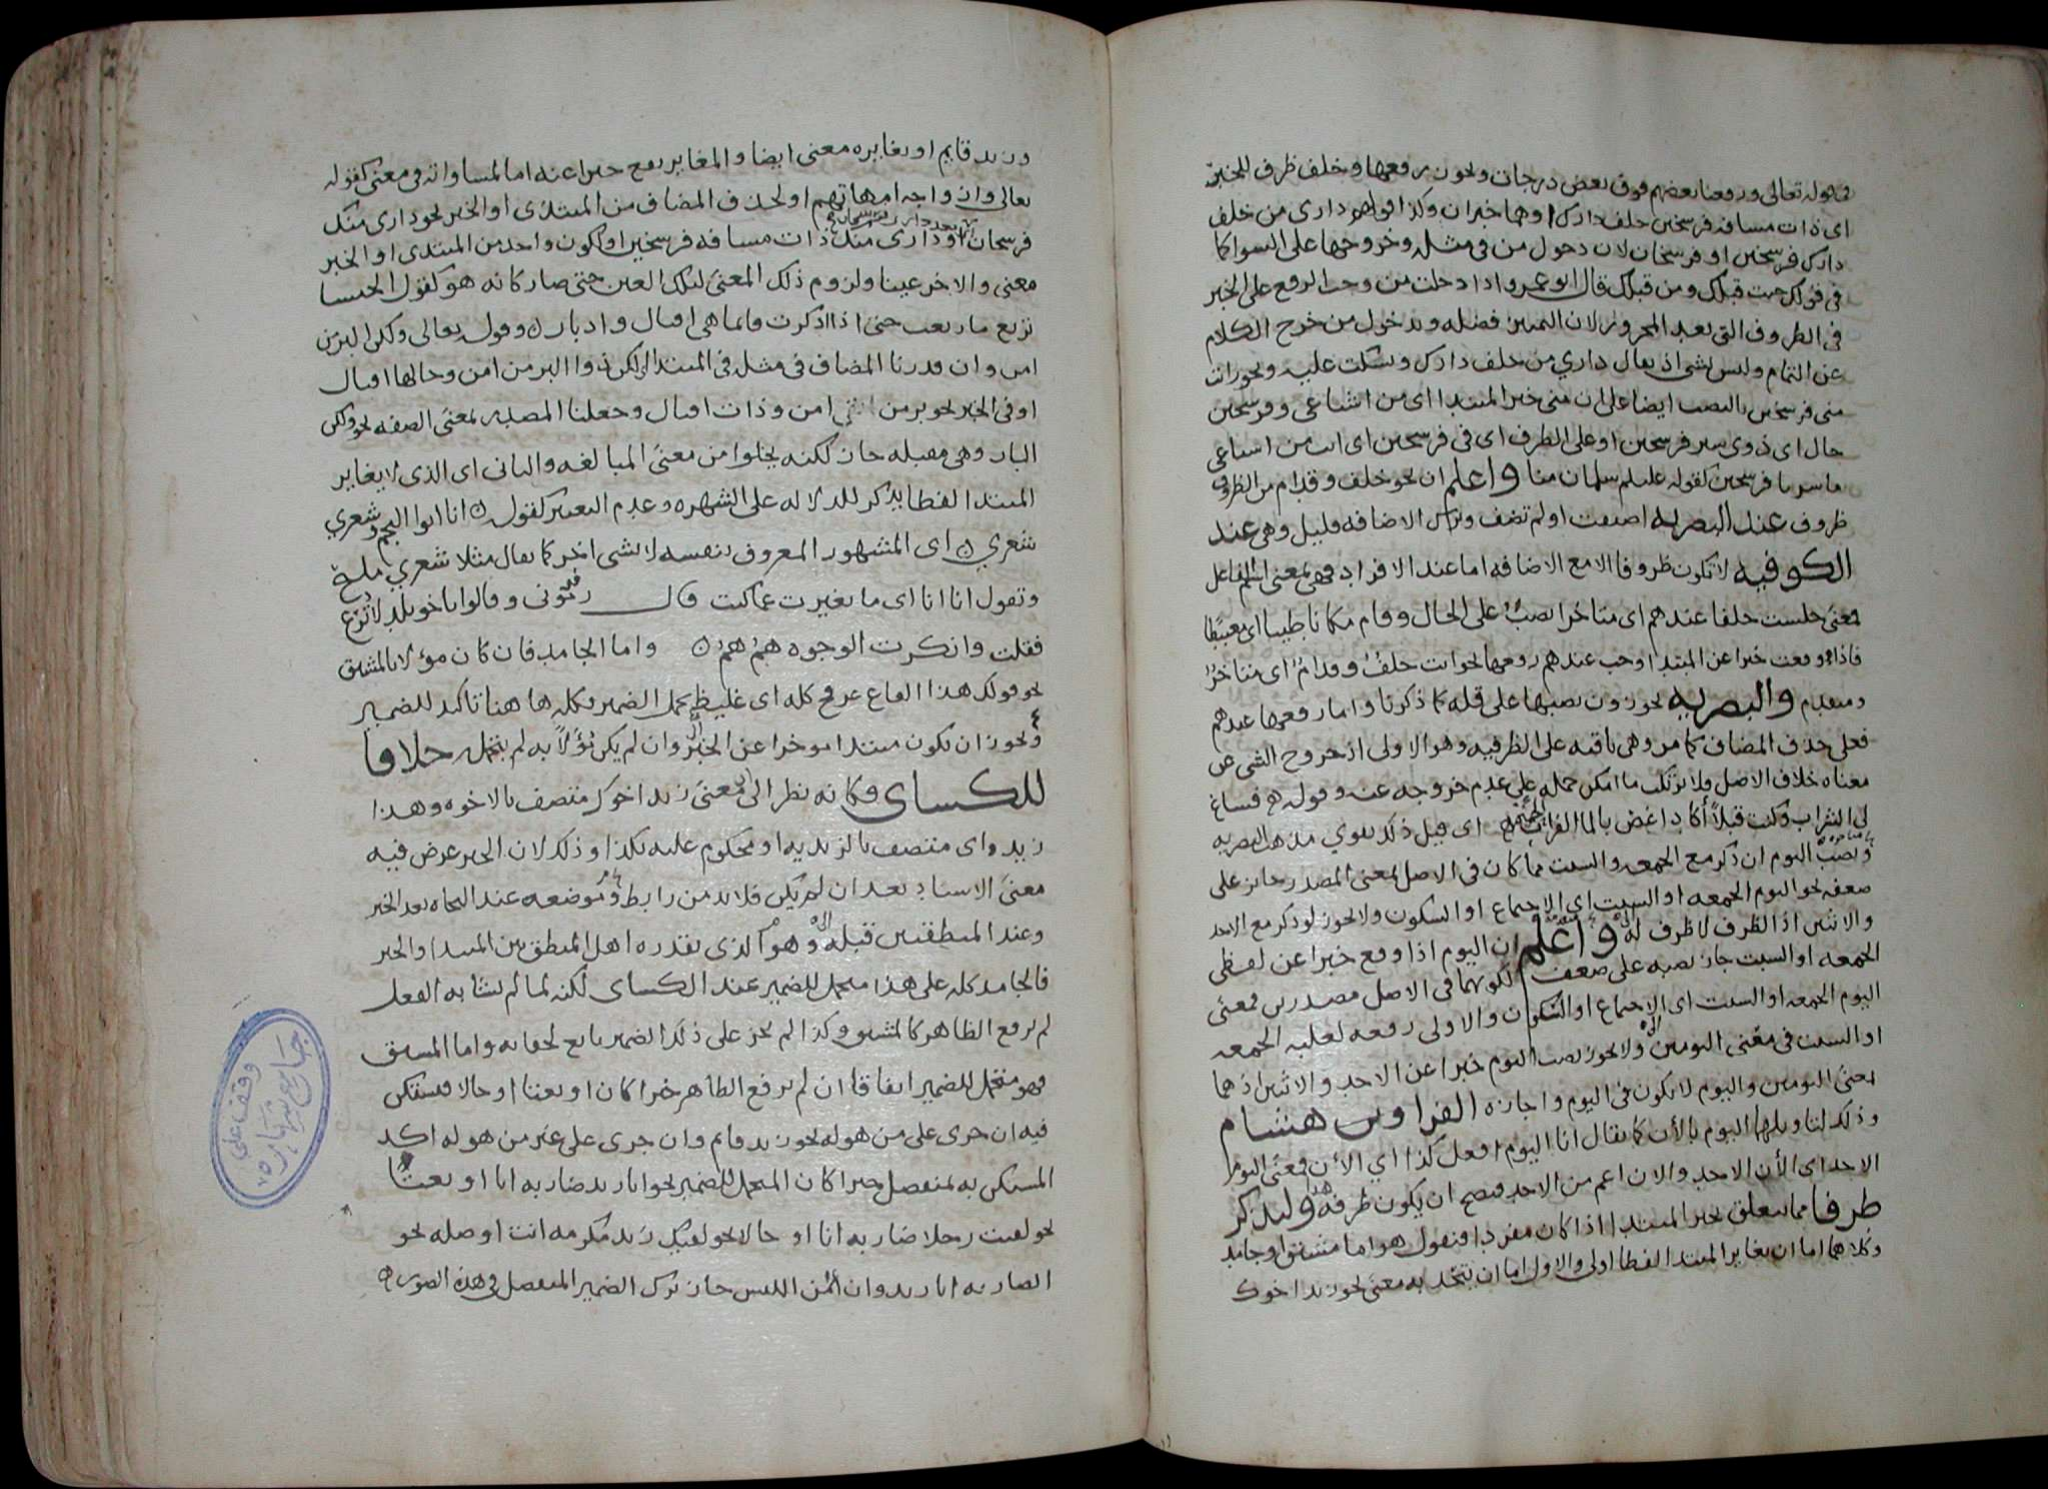 في قوله تعالى ورفعنا بعضهم فوق بعض درجات ونحوز رفعها وخلف ظرف للخبر
اي ذات مسافة فرسخين خلف دارك او هما خبران وكذا قولهم داري من خلف
دارك فرسخين او فرسخان لان دخول من في مثله وخروجها على السواء كما
في قولك جيت قبلك ومن قبلك قال ابو عمرو اذا دخلت من وجب الرفع على الخبر
في الظروف التي بعد المجرور لان التمييز فضله وبدخول من خرج الكلام
عن التمام وليس بشي اذ يقال داري من خلف دارك ويسكت عليه ونحو انت
مني فرسخين بالنصب ايضا على ان مني خبر المبتدا اي من اشياعي وفرسخين
حال اي ذوي سير فرسخين او على الظرف اي في فرسخين اي انت من اشياعي
ما سرنا فرسخين كقوله عليلم سلمان منا واعلم ان نحو خلف وقدام من الظروف
ظروف عند البصريه اضيفت او لم تضف ولكن الاضافه قليل وهي عند
الكوفيه لا تكون ظروفا الا مع الاضافه اما عند الافراد فهي بمعنى اسم الفاعل
فمعنى جلست خلفا عندهم اي متاخرا نصب على الحال وقام مكانا طيبا اي مغتبطا
فاذا وقعت خبرا عن المبتدا وجب عندهم رفعها نحو انت خلف وقدام اي متاخر
ومتقدم والبصريه يجوزون نصبها على قله كما ذكرنا وانما رفعها عندهم
فعلى حذف المضاف كما مر وهي باقيه على الظرفيه وهو الاولى اذ خروج الشي عن
معناه خلاف الاصل ولا يرتكب ما امكن حمله على عدم خروجه عنه وقوله فساغ
لي الشراب وكنت قبلا اكاد اغض بالماء الفرات اي قبل ذلك يقوي مذهب البصريه
ونصب اليوم ان ذكر مع الجمعه والسبت مما كان في الاصل بمعنى المصدر جايز على
ضعفه نحو اليوم الجمعه او السبت اي الاجتماع او السكون ولا يجوز لو ذكر مع الاحد
والاثنين اذ الظرف لا ظرف له واعلم ان اليوم اذا وقع خبرا عن لفظي
الجمعه او السبت جاز نصبه على ضعف لكونهما في الاصل مصدرين فمعنى
اليوم الجمعه او السبت اي الاجتماع او السكون والاولى رفعه لغلبه الجمعه
او السبت في معنى اليومين ولا يجوز نصب اليوم خبرا عن الاحد والاثنين اذ هما
بمعنى اليومين واليوم لا يكون في اليوم واجازه الفرا وبن هشام
وذلك لتاويلهما اليوم بالأن كما يقال انا اليوم افعل كذا اي الأن فمعنى اليوم
الاحد اي الأن الاحد والان اعم من الاحد فيصح ان يكون ظرفه ولنذكر
طرفا مما يتعلق بخبر المبتدا اذا كان مفردا فنقول هو اما مشتق او جامد
وكلاهما اما ان يغاير المبتدا لفظا اولى والاول اما ان يتحد به معنى نحو زيد اخوك
وزيد قايم او يغايره معنى ايضا والمغاير يقع خبرا عنه اما لمساواته في معنى كقوله
تعالى وازواجه امهاتهم او لحذف المضاف من المبتدى او الخبر نحو داري منك
فرسخان او داري منك ذات مسافه فرسخين او لكون واحد من المبتدى او الخبر
معنى والاخر عينا ولزوم ذلك المعنى لتلك العين حتى صار كانه هو كقول الخنسا
ترتع ما رتعت حتى اذا ادكرت فانما هي اقبال وادبار وقوله تعالى ولكن البر من
امن وان قدرنا المضاف في مثله في المبتدا اي لكن ذوا البر من امن وحالها اقبال
او في الخبر نحو بر من امن وذات اقبال وجعلنا المصدر بمعنى الصفه نحو ولكن
البار وهي مقبله جاز لكنه يخلوا من معنى المبالغه والثاني اي الذي لا يغاير
المبتدا لفظا يذكر للدلاله على الشهره وعدم التغير كقوله انا ابوا النجم وشعري
شعري اي المشهور المعروف بنفسه لا بشى اخر كما يقال مثلا شعري مليح
وتقول انا انا اي ما تغيرت عما كنت قال رفوني وقالوا يا خويلد لا ترع
فقلت وانكرت الوجوه هم هم واما الجامد فان كان مؤلا بالمشتق
نحو قولك هذا القاع عرفج كله اي غليظ تحمل الضمير فكله ها هنا تاكيد للضمير
ويجوز ان يكون مبتدا موخرا عن الخبر وان لم يكن مؤلا به لم يتحمله خلافا
للكساى فكانه نظر الى معنى زيد اخوك متصف بالاخوه وهذا
زيد اي متصف بالزيديه او محكوم عليه بكذا وذلك لان الخبر عرض فيه
معنى الاسناد بعد ان لم يكن فلا بد من رابط وموضعه عند النحاه بعد الخبر
وعند المنطقيين قبله وهو الذي يقدره اهل المنطق بين المبتدا والخبر
فالجامد كله على هذا متحمل للضمير عند الكساى لكنه لما لم يشابه الفعل
لم يرفع الظاهر كالمشتق وكذا لم يجز على ذلك الضمير تابع لخفايه واما المشتق
فهو متحمل للضمير اتفاقا ان لم يرفع الظاهر خبرا كان او نعتا او حالا فيستكن
فيه ان جرى على من هو له نحو زيد قايم وان جرى على غير من هو له اكد
المستكن به بمنفصل خبرا كان المتحمل للضمير نحو انا زيد ضاربه انا او نعتا
نحو لقيت رجلا ضاربه انا او حالا نحو لقيك زيد مكرمه انت او صله نحو
الضاربه انا زيد وان امن اللبس جاز ترك الضمير المنفصل في هذه الصور
وقف على
جامع شهاره